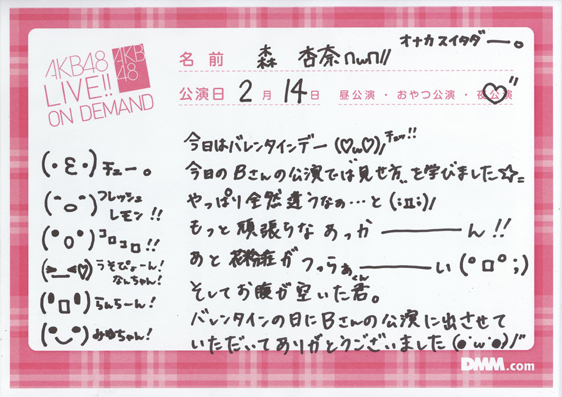 オナカスイタダー。
AKB48
LIVE!!
ON DEMAND
AKB
48
名前 森 杏奈∩ω∩//
公演日 2月14日 昼公演・おやつ公演・夜公演
今日はバレンタインデー(♡ω♡)/チュッ!!
今日のBさんの公演では"見せ方"を学びました☆=
やっぱり全然違うなぁ…と(;Д;)/
もっと頑張らなあっか―――ん!!
あと花粉症がつっらぁ―――い(°ロ°;)
そしてお腹が空いた君。
くん
バレンタインの日にBさんの公演に出させて
いただいてありがとうございました(●'ω'●)/"
(・ε・)チュー。
(^o^)フレッシュレモン!!
(°o°)コロコロ!!
(>_<♡)うそぴょーん!なんちゃん!
('ロ')らんらーん!
(•‿•)みゆちゃん!
DMM.com